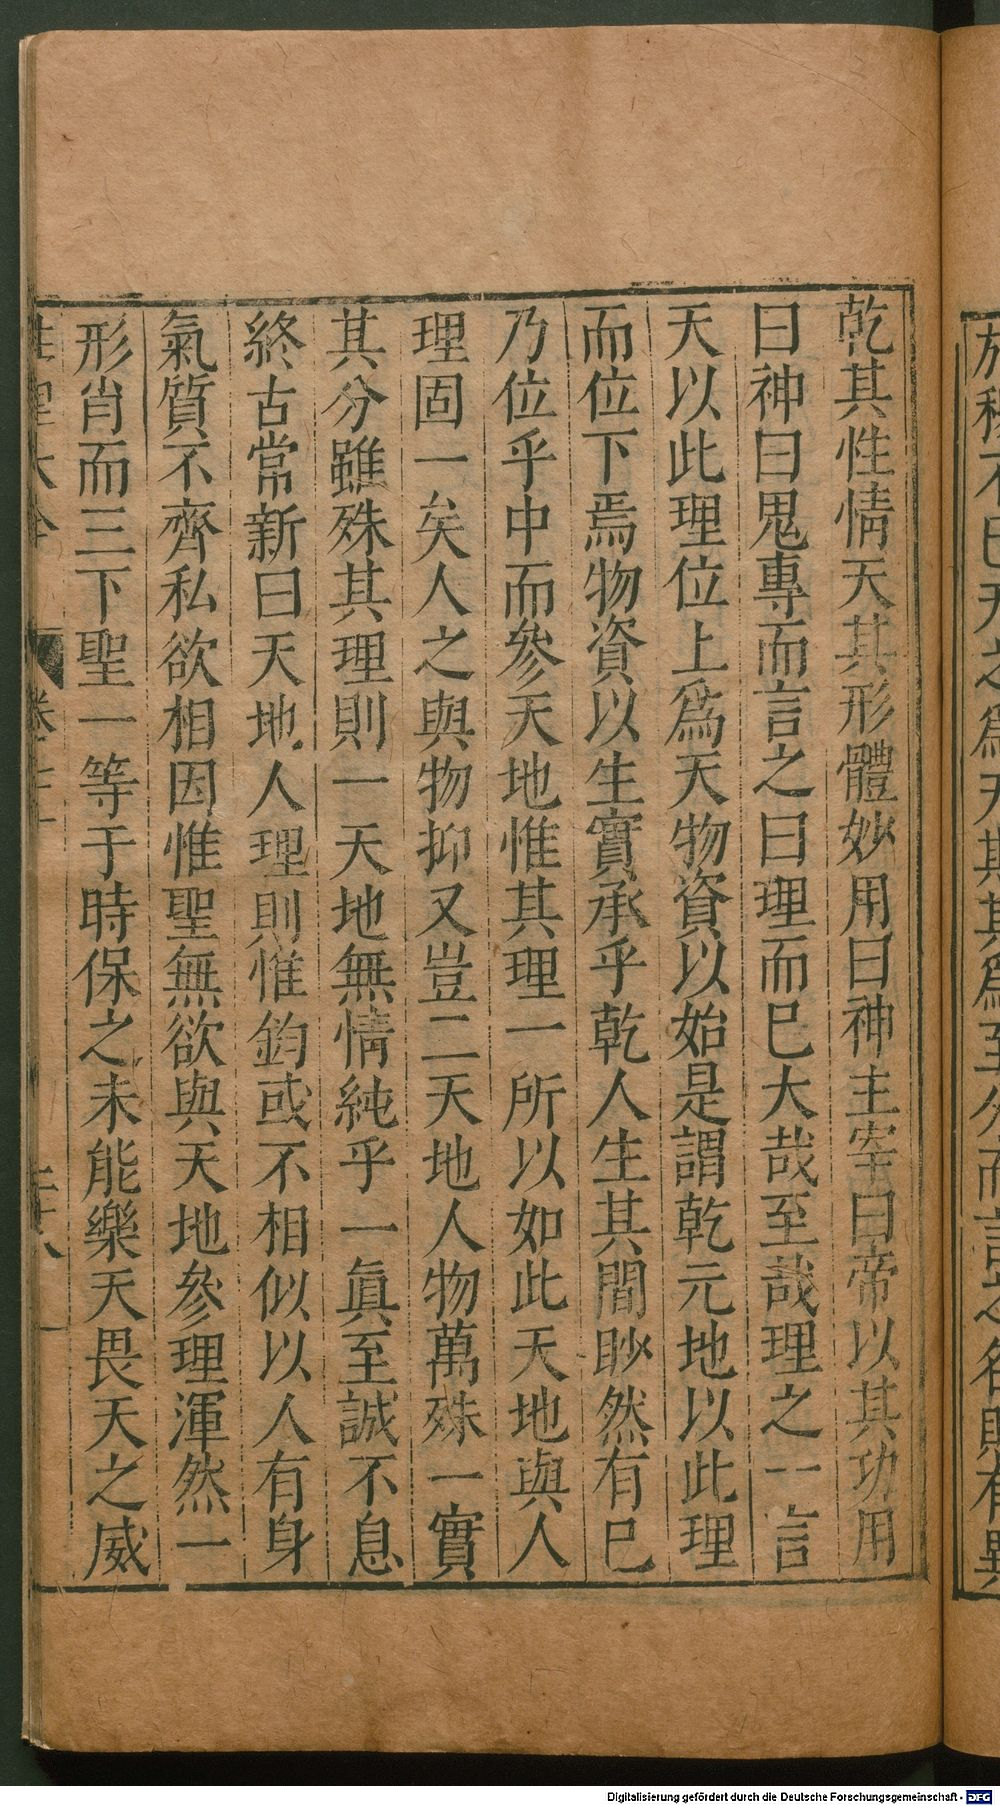 於穆不已天之爲天斯其爲至分而言之名則有異
乾其性情天其形體妙用曰神主宰曰帝以其功用
曰神曰鬼專而言之曰理而巳大哉至哉理之一言
天以此理位上爲天物資以始是謂乾元地以此理
而位下焉物資以生實承乎乾人生其間眇然有巳
乃位乎中而參天地惟其理一所以如此天地與人
理固一矣人之與物抑又豈二天地人物萬殊一實
其分雖殊其理則一天地無情純乎一眞至誠不息
終古常新曰天地人理則惟鈞或不相似以人有身
氣質不齊私欲相因惟聖無欲與天地參理渾然一
形肖而三下聖一等于時保之未能樂天畏天之威
性理大全 卷 二十八
Digitalisierung gefördert durch die Deutsche Forschungsgemeinschaft - DFG